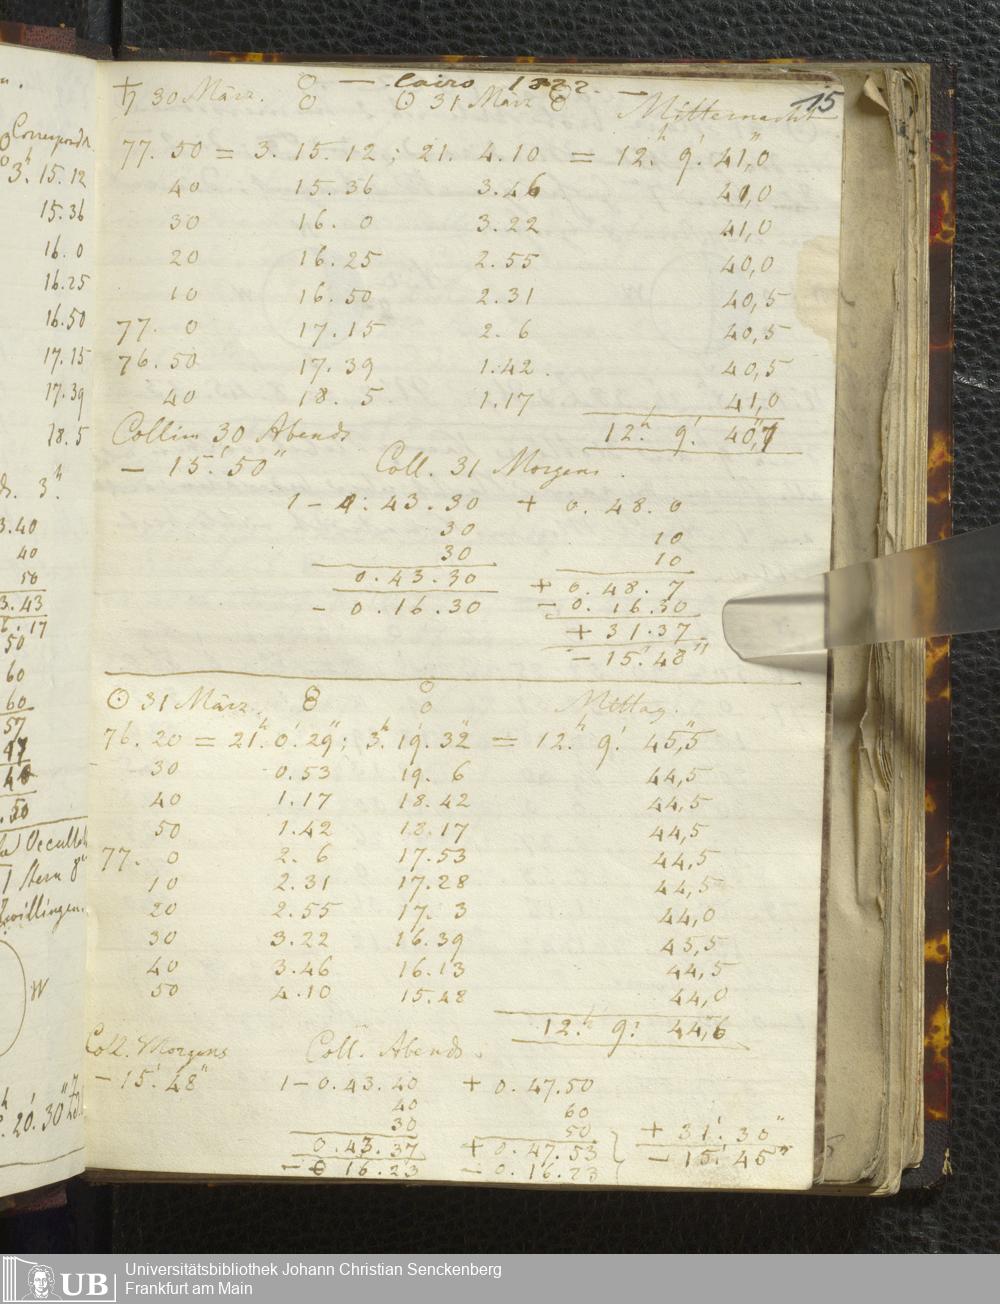 n.
Correspond.
3.h 15.12
15.36
16. 0
16.25
16.50
17.15
17.39
18. 5
3.h
3.40
40
50
3.43
6.17
50
60
60
57
47
40
.50
Occult
1 Stern 8
Zwillingen
W
20.' 30"
— Cairo 1822. —
15
♄ 30 März. ☉ 31 März Mitternacht
77. 50 = 3. 15. 12; 21. 4. 10 = 12.h 9.' 41,"0
40 15.36 3.46 41,0
30 16. 0 3.22 41,0
20 16.25 2.55 40,0
10 16.50 2.31 40,5
77. 0 17.15 2. 6 40,5
76.50 17.39 1.42. 40,5
40 18. 5 1.17 41,0
Collim 30 Abends 12.h 9.' 40,"7
– 15.' 50" Coll. 31 Morgens.
1 – 0. 43. 30 + 0. 48. 0
30 10
30 10
0. 43. 30 + 0. 48. 7
– 0. 16. 30 – 0. 16.30
+ 31.37
– 15.' 48"
☉ 31 März. Mittag.
76. 20 = 21.h 0.' 29"; 3.h 19.' 32" = 12.h 9.' 45,"5
30 0.53 19. 6 44,5
40 1.17 18.42 44,5
50 1.42 18.17 44,5
77. 0 2. 6 17.53 44,5
10 2.31 17.28 44,5
20 2.55 17. 3 44,0
30 3.22 16.39 45,5
40 3.46 16.13 44,5
50 4.10 15.48 44,0
12.h 9.' 44,6
Coll. Morgens Coll. Abends.
– 15.' 48" 1 – 0. 43. 40 + 0. 47. 50
40 60
30 50
0. 43. 37 + 0. 47. 53 + 31.' 30"
– 0 16. 23 – 0. 16. 23 – 15.' 45"
UB
Universitätsbibliothek Johann Christian Senckenberg
Frankfurt am Main